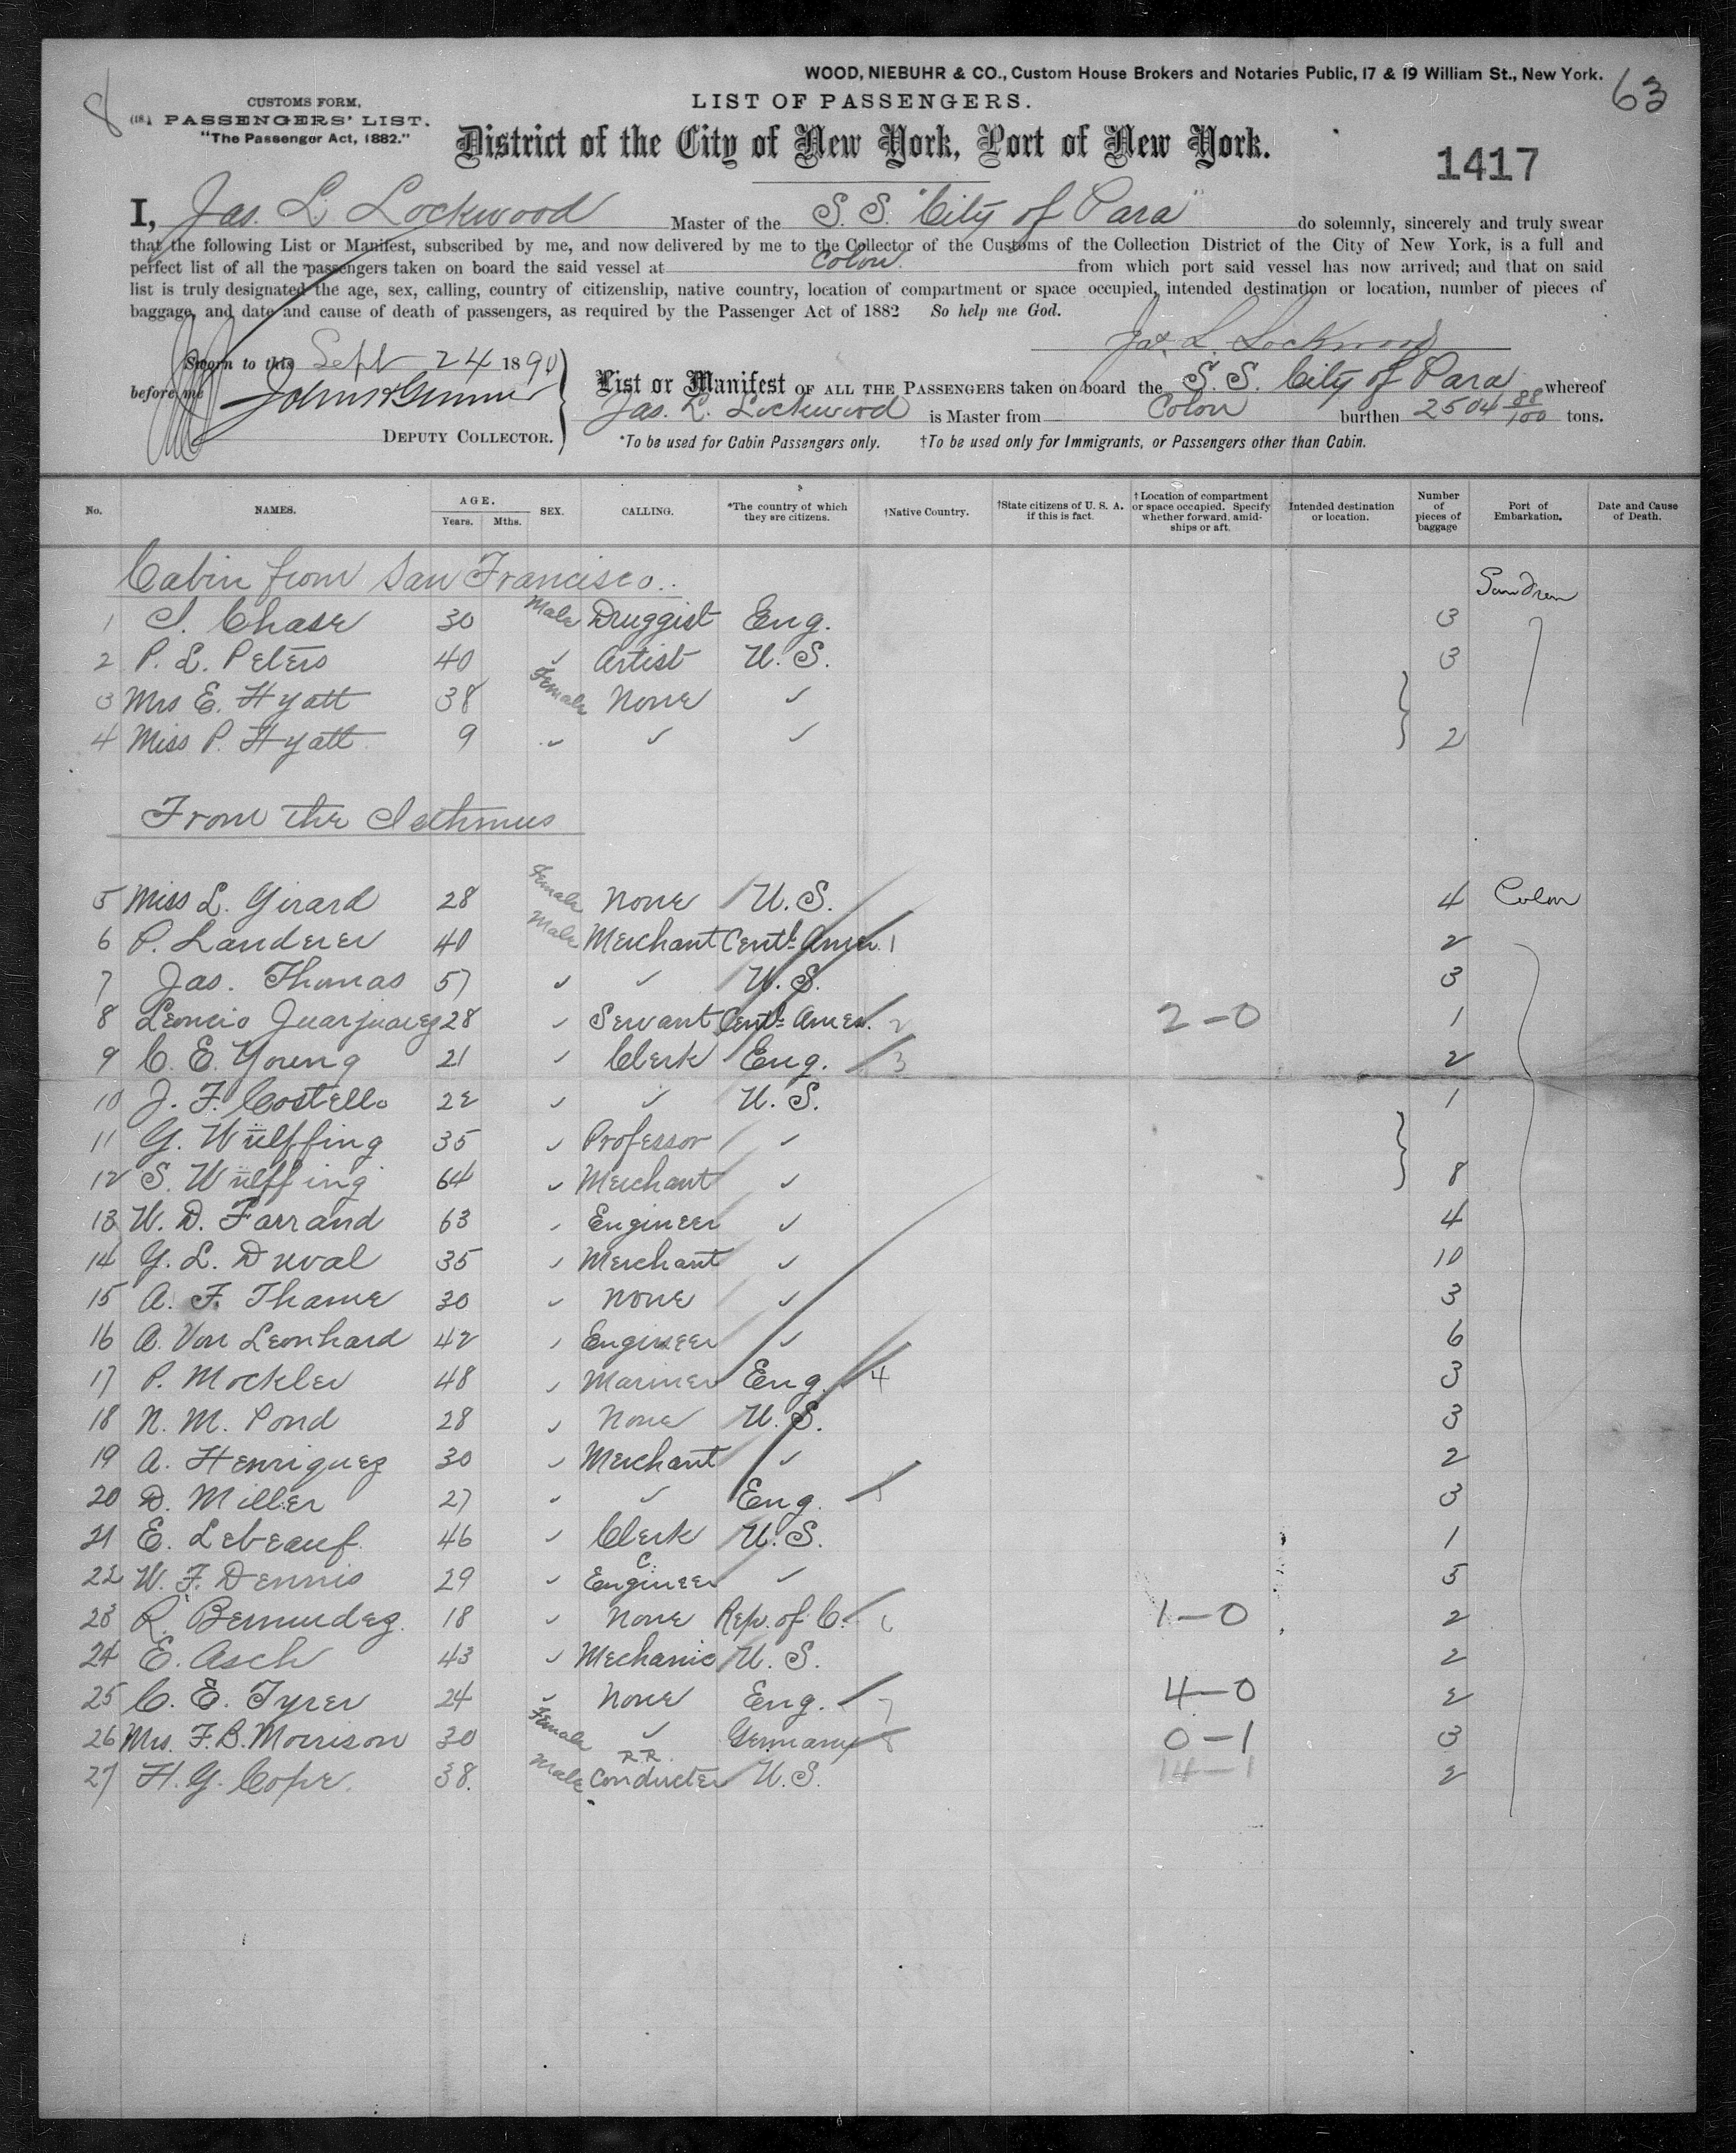 WOOD, NIEBUHR & CO., Custom House Brokers and Notaries Public, 17 & 19 William St., New York.
63
8
CUSTOMS FORM,
(18.) PASSENGERS' LIST.
"The Passenger Act, 1882."
LIST OF PASSENGERS.
District of the City of New York, Port of New York.
1417
I, Jas. L. Lockwood Master of the S. S. "City of Para" do solemnly, sincerely and truly swear
that the following List or Manifest, subscribed by me, and now delivered by me to the Collector of the Customs of the Collection District of the City of New York, is a full and
perfect list of all the passengers taken on board the said vessel at Colon. from which port said vessel has now arrived; and that on said
list is truly designated the age, sex, calling, country of citizenship, native country, location of compartment or space occupied, intended destination or location, number of pieces of
baggage, and date and cause of death of passengers, as required by the Passenger Act of 1882 So help me God.
Jas. L. Lockwood
Sworn to this Sept 24 1890
before me
DEPUTY COLLECTOR.
List or Manifest OF ALL THE PASSENGERS taken on board the S. S. City of Para whereof
Jas. L. Lockwood is Master from Colon burthen 2504 88/100 tons.
*To be used for Cabin Passengers only. †To be used only for Immigrants, or Passengers other than Cabin.
No. NAMES. AGE. Years. Mths. SEX. CALLING. *The country of which they are citizens. †Native Country. †State citizens of U. S. A. if this is fact. †Location of compartment or space occupied. Specify whether forward, amidships or aft. Intended destination or location. Number of pieces of baggage Port of Embarkation. Date and Cause of Death.
Cabin from San Francisco.
1 I. Chase 30 Male Druggist Eng. 3
2 P. L. Peters 40 ✓ Artist U. S. 3
3 Mrs E. Hyatt 38 Female None ✓
4 Miss P. Hyatt 9 ✓ ✓ ✓ 2
From the Isthmus
5 Miss L. Girard 28 Female None U. S. 4 Colon
6 P. Landerer 40 Male Merchant Centl. Amer. 1 2
7 Jas. Thomas 57 ✓ ✓ U. S. 3
8 Leoncio 28 ✓ Servant Centl. Amer. 2 2-0 1
9 C. E. Young 21 ✓ Clerk Eng. 3 2
10 J. F. Costello 22 ✓ ✓ U. S. 1
11 G. Wülffing 35 ✓ Professor ✓
12 S. Wülffing 64 ✓ Merchant ✓ 8
13 W. D. Farrand 63 ✓ Engineer ✓ 4
14 G. L. Duval 35 ✓ Merchant ✓ 10
15 A. F. Thame 30 ✓ None ✓ 3
16 A. Von Leonhard 42 ✓ Engineer ✓ 6
17 P. Mockler 48 ✓ Mariner Eng. 4 3
18 N. M. Pond 28 ✓ None U. S. 3
19 A. Henriquez 30 ✓ Merchant ✓ 2
20 D. Miller 27 ✓ ✓ Eng. 5 3
21 E. Lebeauf 46 ✓ Clerk U. S. 1
22 W. F. Dennis 29 ✓ C. Engineer ✓ 5
23 R. Bermudez. 18 ✓ None Rep. of C. 6 1-0 2
24 E. Asch 43 ✓ Mechanic U. S. 2
25 C. E. Tyrer 24 ✓ None Eng. 7 4-0 2
26 Mrs. F. B. Morrison 30 Female ✓ Germany 8 0-1 3
27 H. G. Cope. 38. Male R.R. Conductor U. S. 14-1 2